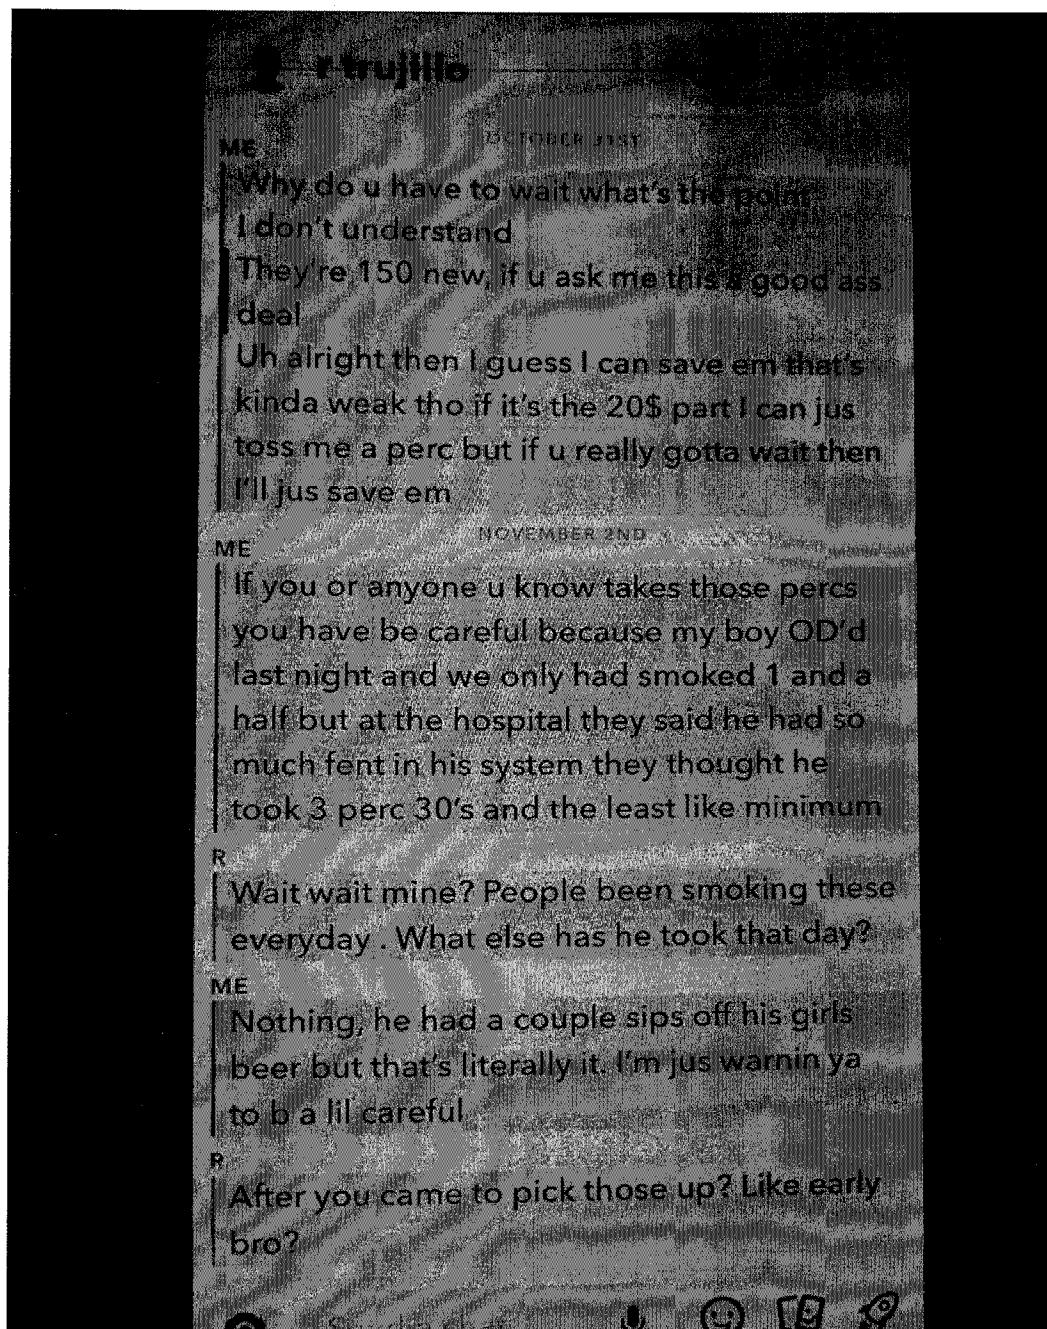 r trujillo
OCTOBER 31ST
ME
Why do u have to wait what's the point
I don't understand
They're 150 new, if u ask me this a good ass
deal
Uh alright then I guess I can save em that's
kinda weak tho if it's the 20$ part I can jus
toss me a perc but if u really gotta wait then
I'll jus save em
NOVEMBER 2ND
ME
If you or anyone u know takes those percs
you have be careful because my boy OD'd
last night and we only had smoked 1 and a
half but at the hospital they said he had so
much fent in his system they thought he
took 3 perc 30's and the least like minimum
R
Wait wait mine? People been smoking these
everyday . What else has he took that day?
ME
Nothing, he had a couple sips off his girls
beer but that's literally it. I'm jus warnin ya
to b a lil careful
R
After you came to pick those up? Like early
bro?